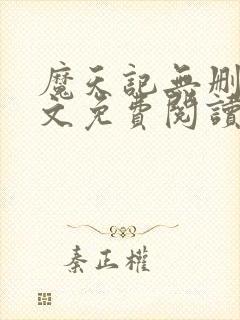 魔天記無刪
文免費閱讀
秦正權